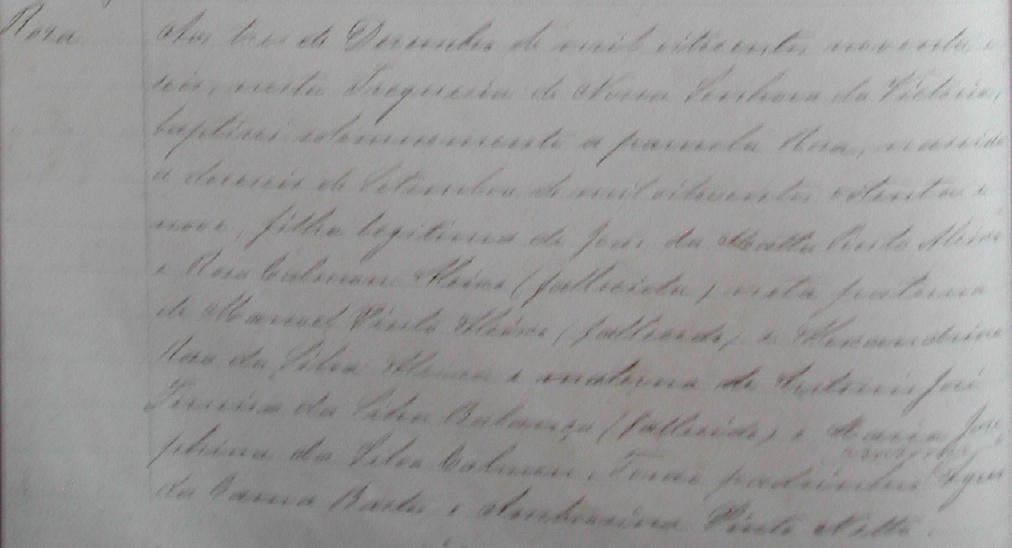 Rosa
Aos tres de Dezembro de mil oitocentos noventa e
seis, nesta Freguezia de Nossa Senhora da Victoria,
baptisei solemnemente a parvula Rosa, nascida
a dezeseis de Setembro de mil oitocentos oitenta e
nove, filha legitima de José da Motta Pinto Aleixo
e Rosa Calmon Aleixo (fallecida) neta paterna
de Manoel Pinto Aleixo (fallecido) e Alexandrina
Rosa da Silva Aleixo e materna de Antonio José
Ferreira da Silva Balança (fallecido) e Maria José
phina da Silva Calmon. Foram padrinhos
da Gama Bastos e Ambrosina Pinto Netto.